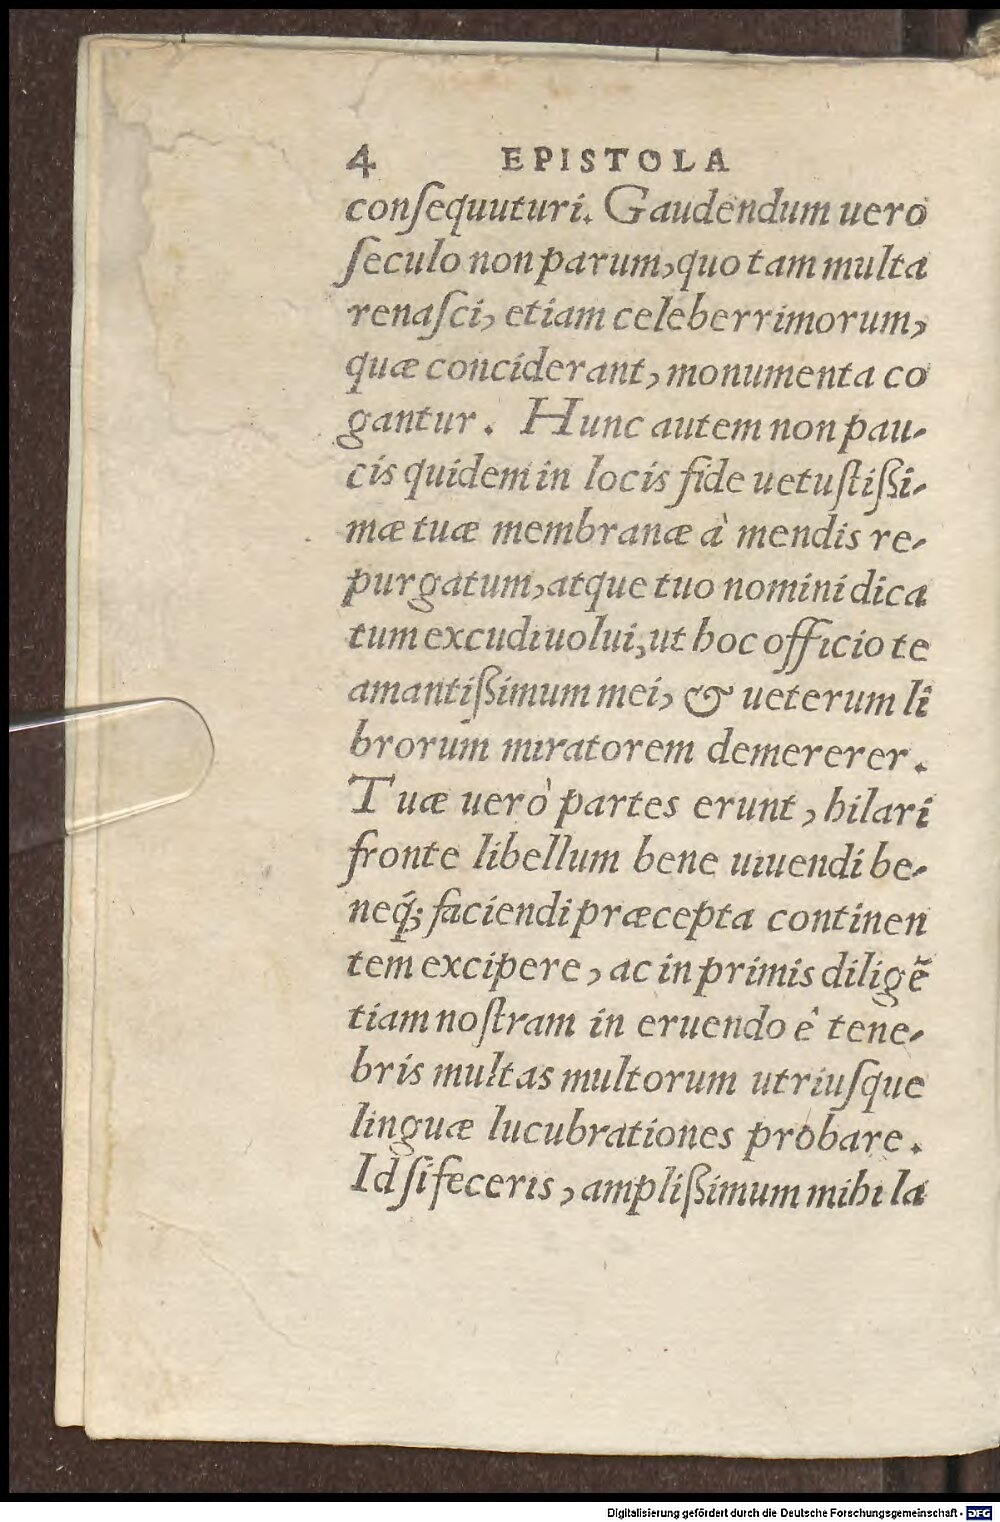 4 EPISTOLA
conſequuturi. Gaudendum uero
ſeculo non parum, quo tam multa
renaſci, etiam celeberrimorum,
quæ conciderant, monumenta co
gantur. Hunc autem non pau-
cis quidem in locis fide uetuſtißi-
mæ tuæ membranæ à mendis re-
purgatum, atque tuo nomini dica
tum excudi uolui, ut hoc officio te
amantißimum mei, & ueterum li
brorum miratorem demererer.
Tuæ uerò partes erunt, hilari
fronte libellum bene uiuendi be-
neq́; faciendi præcepta continen
tem excipere, ac in primis diligẽ
tiam noſtram in eruendo ê tene-
bris multas multorum utriuſque
linguæ lucubrationes probare.
Id ſi feceris, amplißimum mihi la
Digitalisierung gefördert durch die Deutsche Forschungsgemeinschaft - DFG